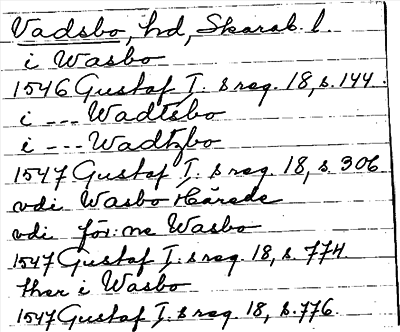 Vadsbo, hd, Skarab. l.
i Wasbo
1546 Gustaf I:s reg. 18, s. 144.
i --- Wadtsbo
i --- Wadtzbo
1547 Gustaf I:s reg. 18, s. 306
vdi Wasbo Härede
vdi för:ne Wasbo
1547 Gustaf I:s reg. 18, s. 774
ther i Wasbo
1547 Gustaf I:s reg. 18, s. 776.